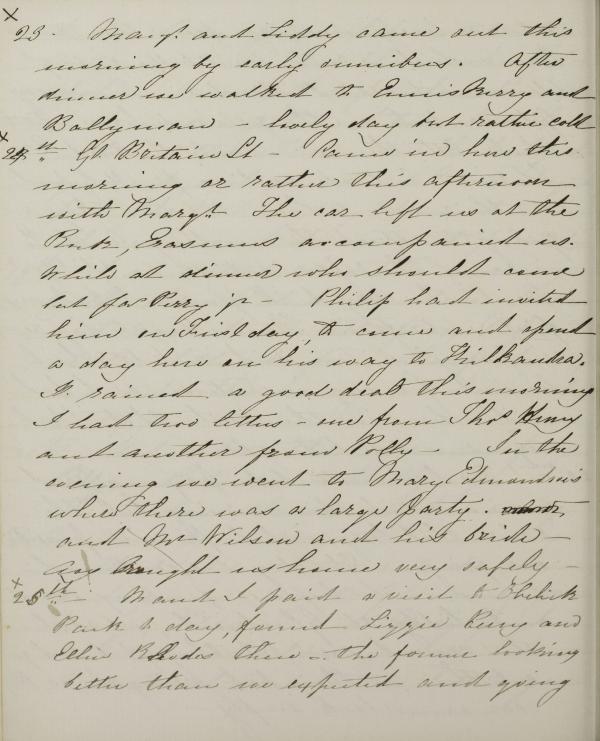 x
23. Margt. and Liddy came out this
morning by early omnibus. After
dinner we walked to Enniskerry and
Ballyman - lovely day but rather cold
x
24th Gt. Britain St - Came in here this
morning or rather this afternoon
with Margt. The car left us at the
Erasmus accompanied us.
While at dinner who should come
but Jas Perry jr - Philip had invited
him on First day, to come and spend
a day here on his way to
It rained a good deal this morning
I had two letters - one from Thos Henry
and another from Polly - In the
evening we went to Mary Edmondson's
where there was a large party.
and Mr Wilson and his bride -
home very safely -
x
25th M and I paid a visit to Obelisk
Park to day, found Lizzie Perry and
Ellie Rhodes there - the former looking
better than we expected and going